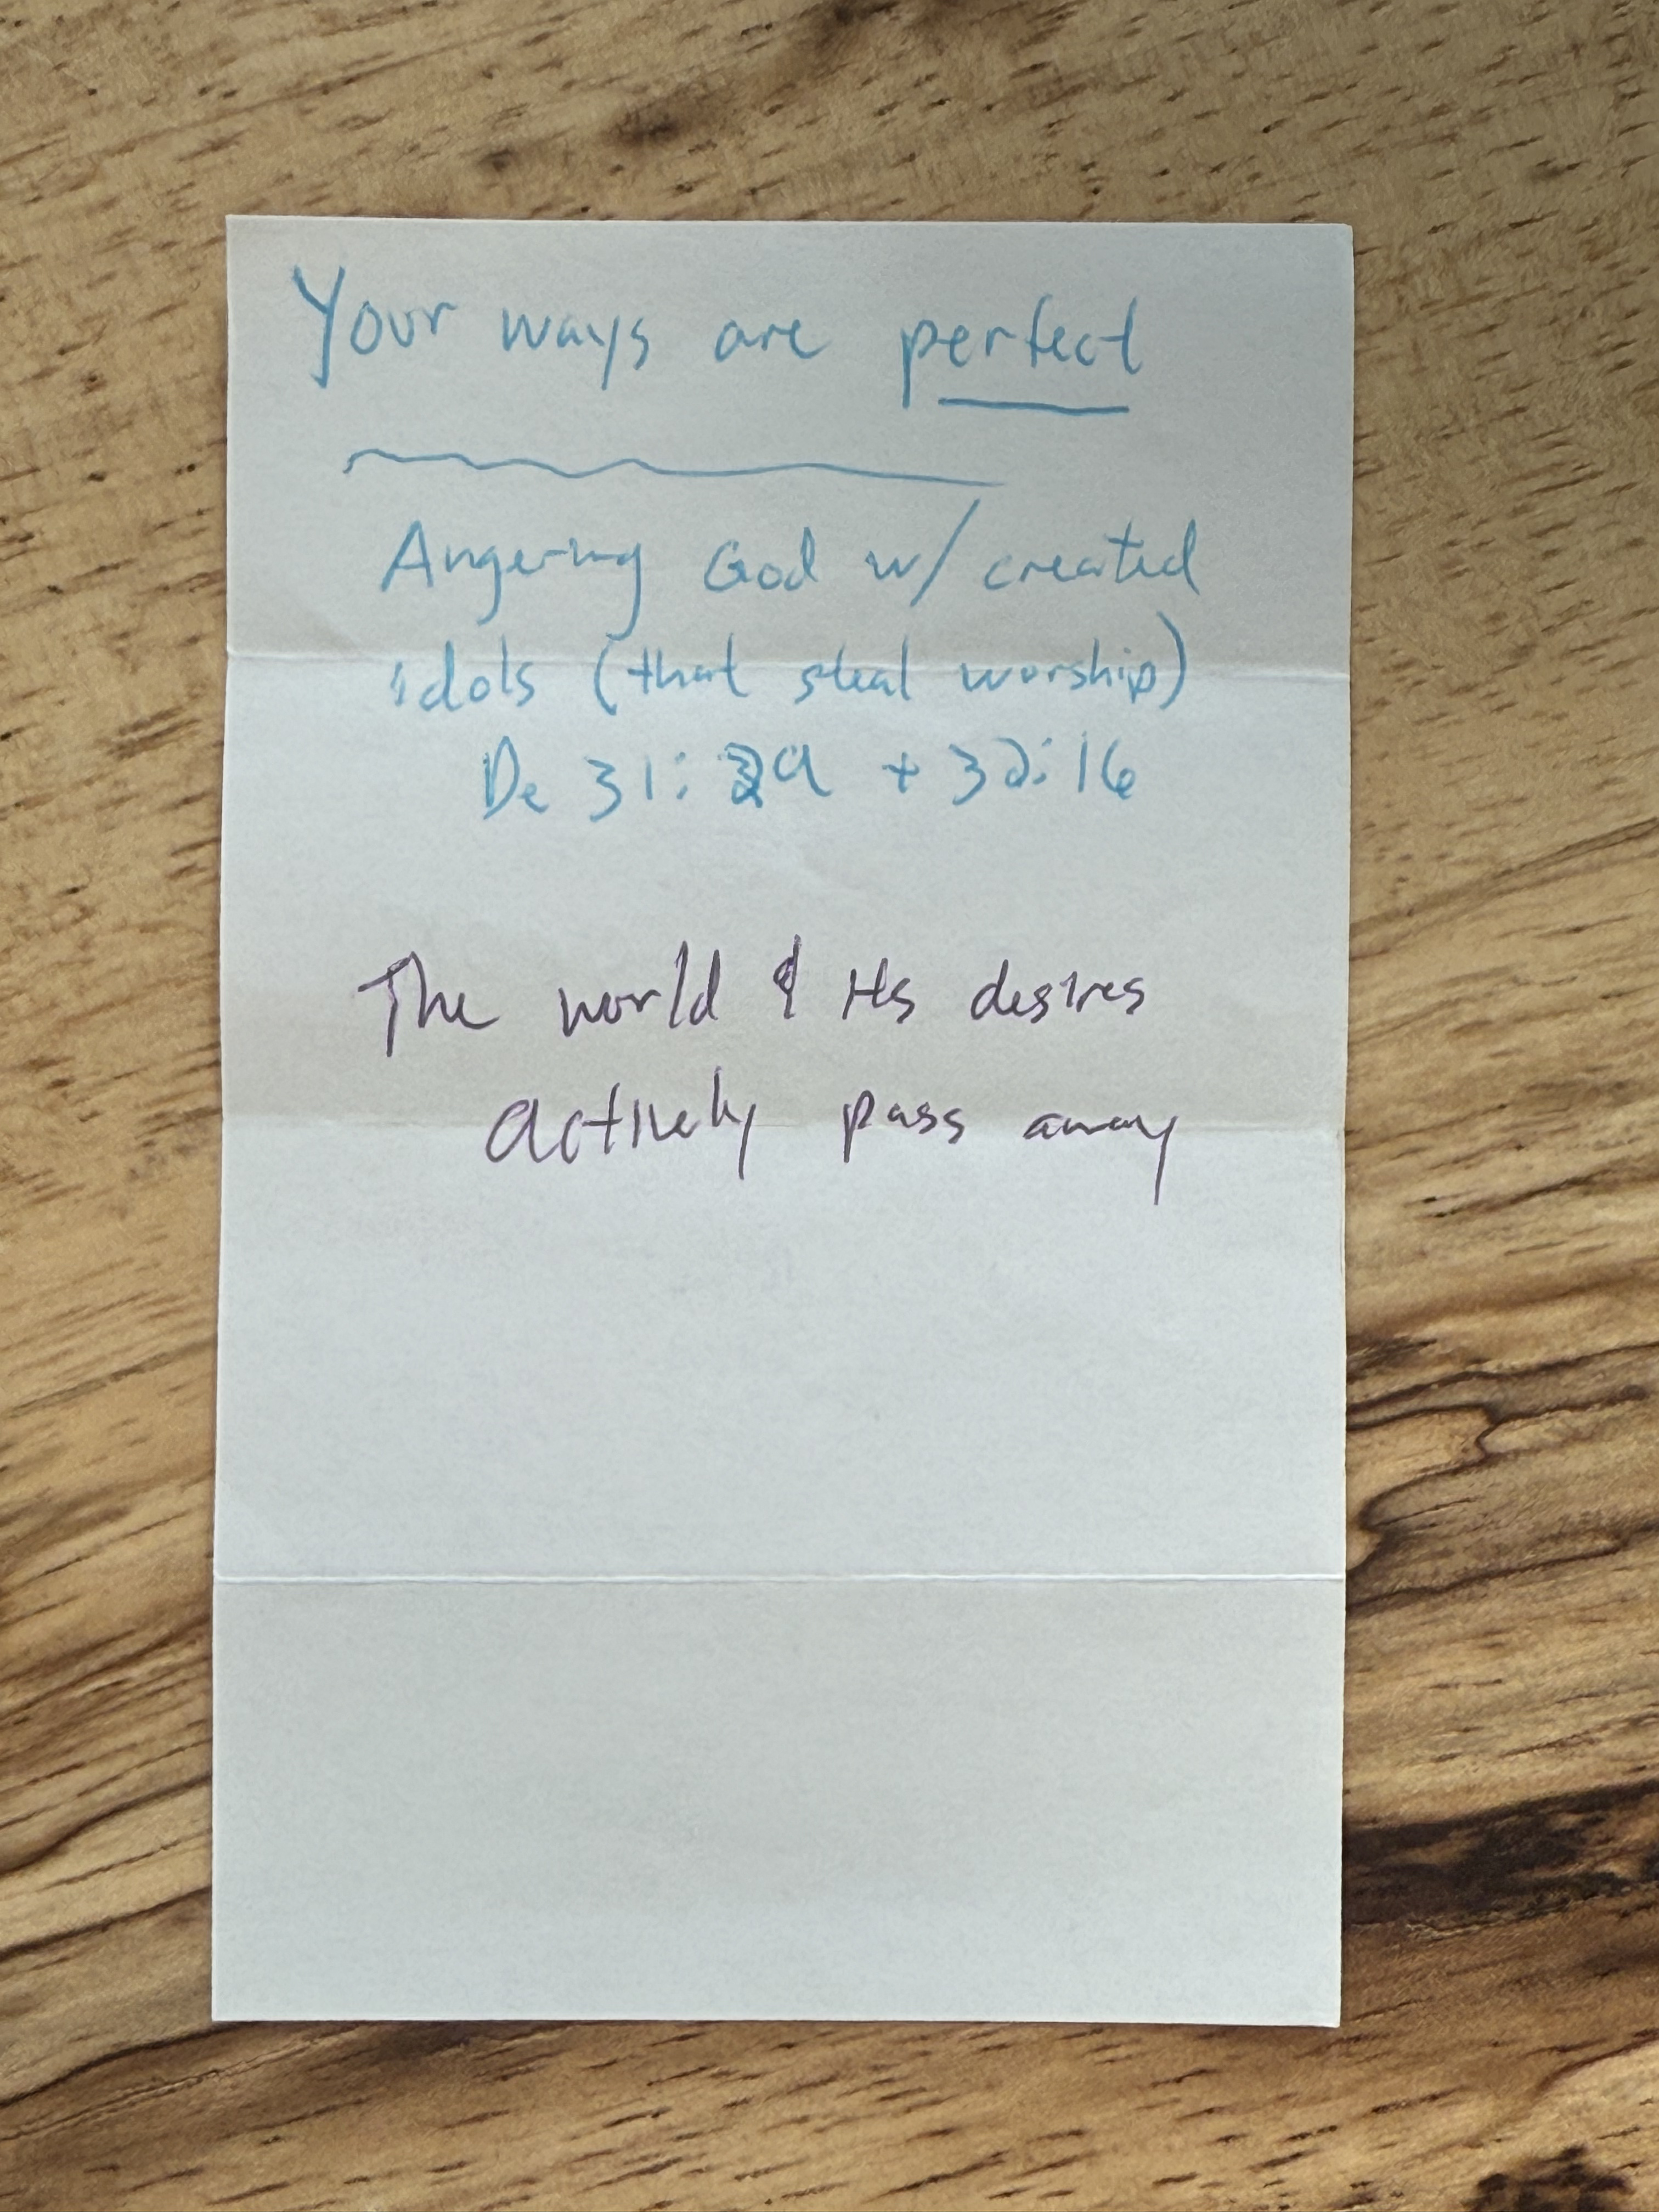 Your ways are perfect
Angering God w/ created
idols (that steal worship)
De 31:29 + 32:16
The world & its desires
actively pass away